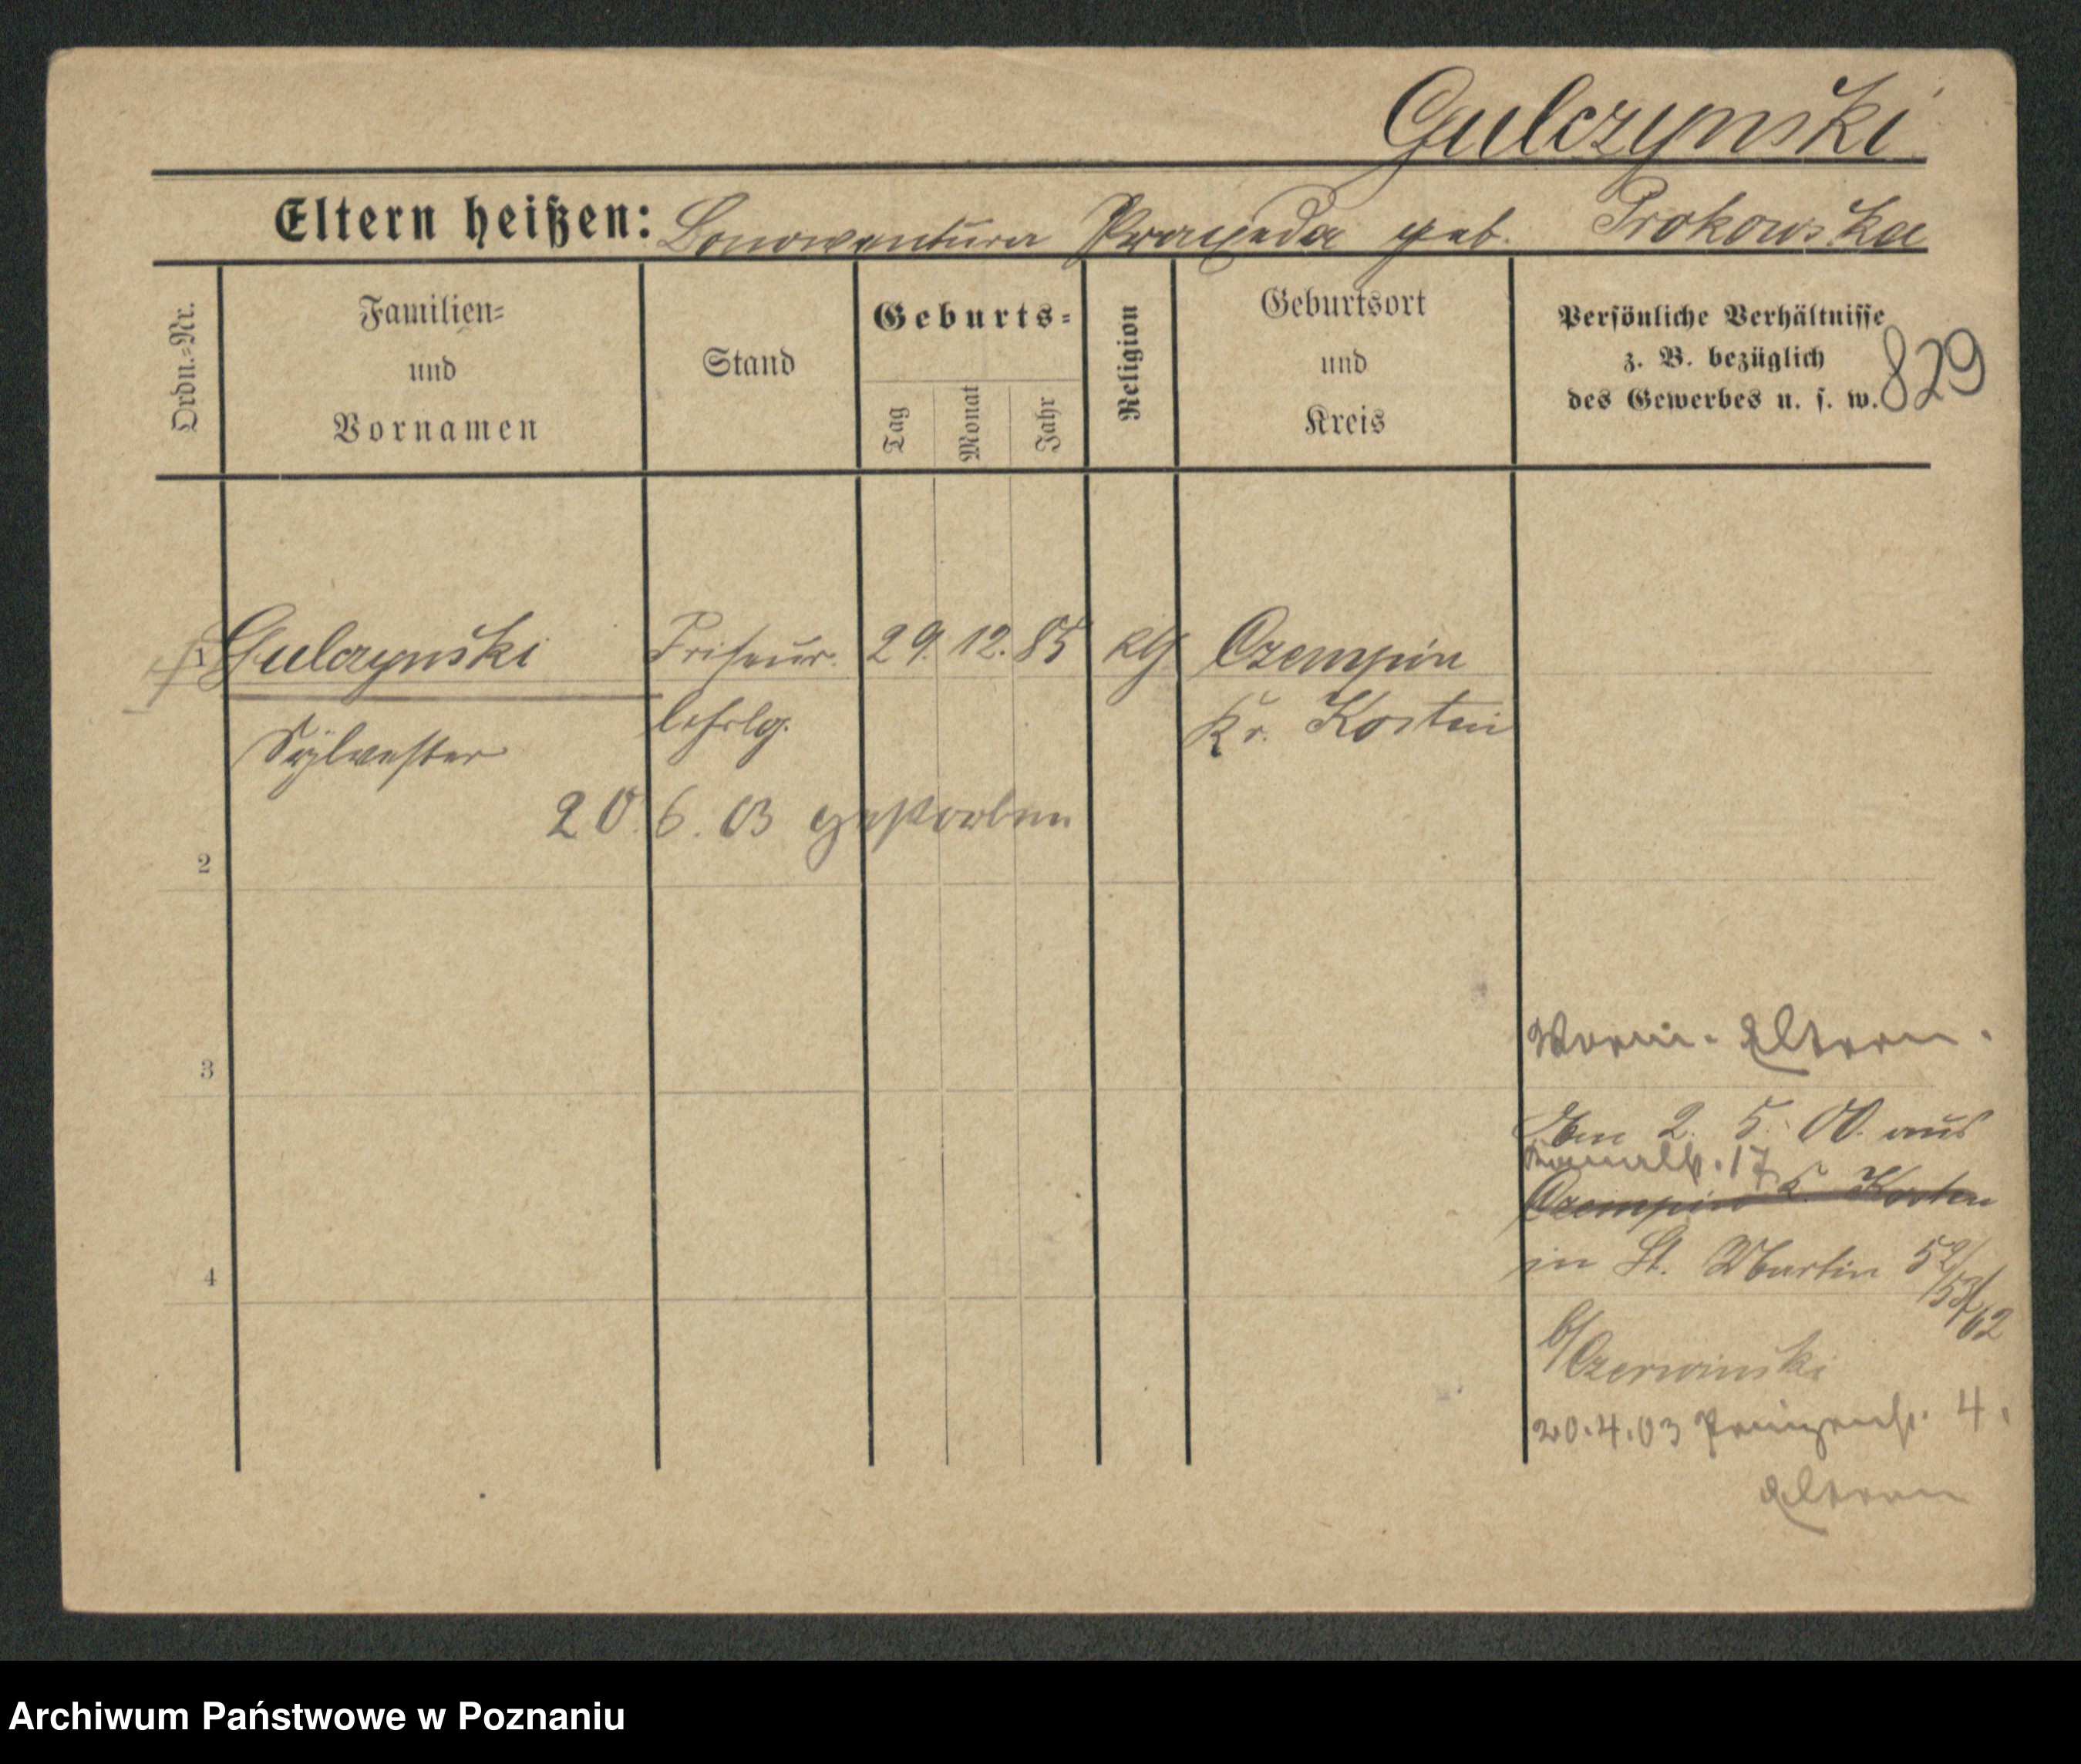 Gulczynski
Eltern heißen: Bonowentura Praxeda geb. Prokowska
Ordn.=Nr.
Familien=
und
Vornamen
Stand
Geburts=
Tag
Monat
Jahr
Religion
Geburtsort
und
Kreis
Persönliche Verhältnisse
z. B. bezüglich
des Gewerbes u. s. w.
829
1 Gulczynski Friseur 29. 12. 85 kth Czempin
lehrlg. Kr. Kosten
Sylvester
20. 6. 03 gestorben
2
3
4
Eltern.
Am 2. 5. 00. aus
17
Czempin K. Kosten
in St. Martin 52/53/62
b/Czerwinski
20.4.03 4.
Eltern
Archiwum Państwowe w Poznaniu